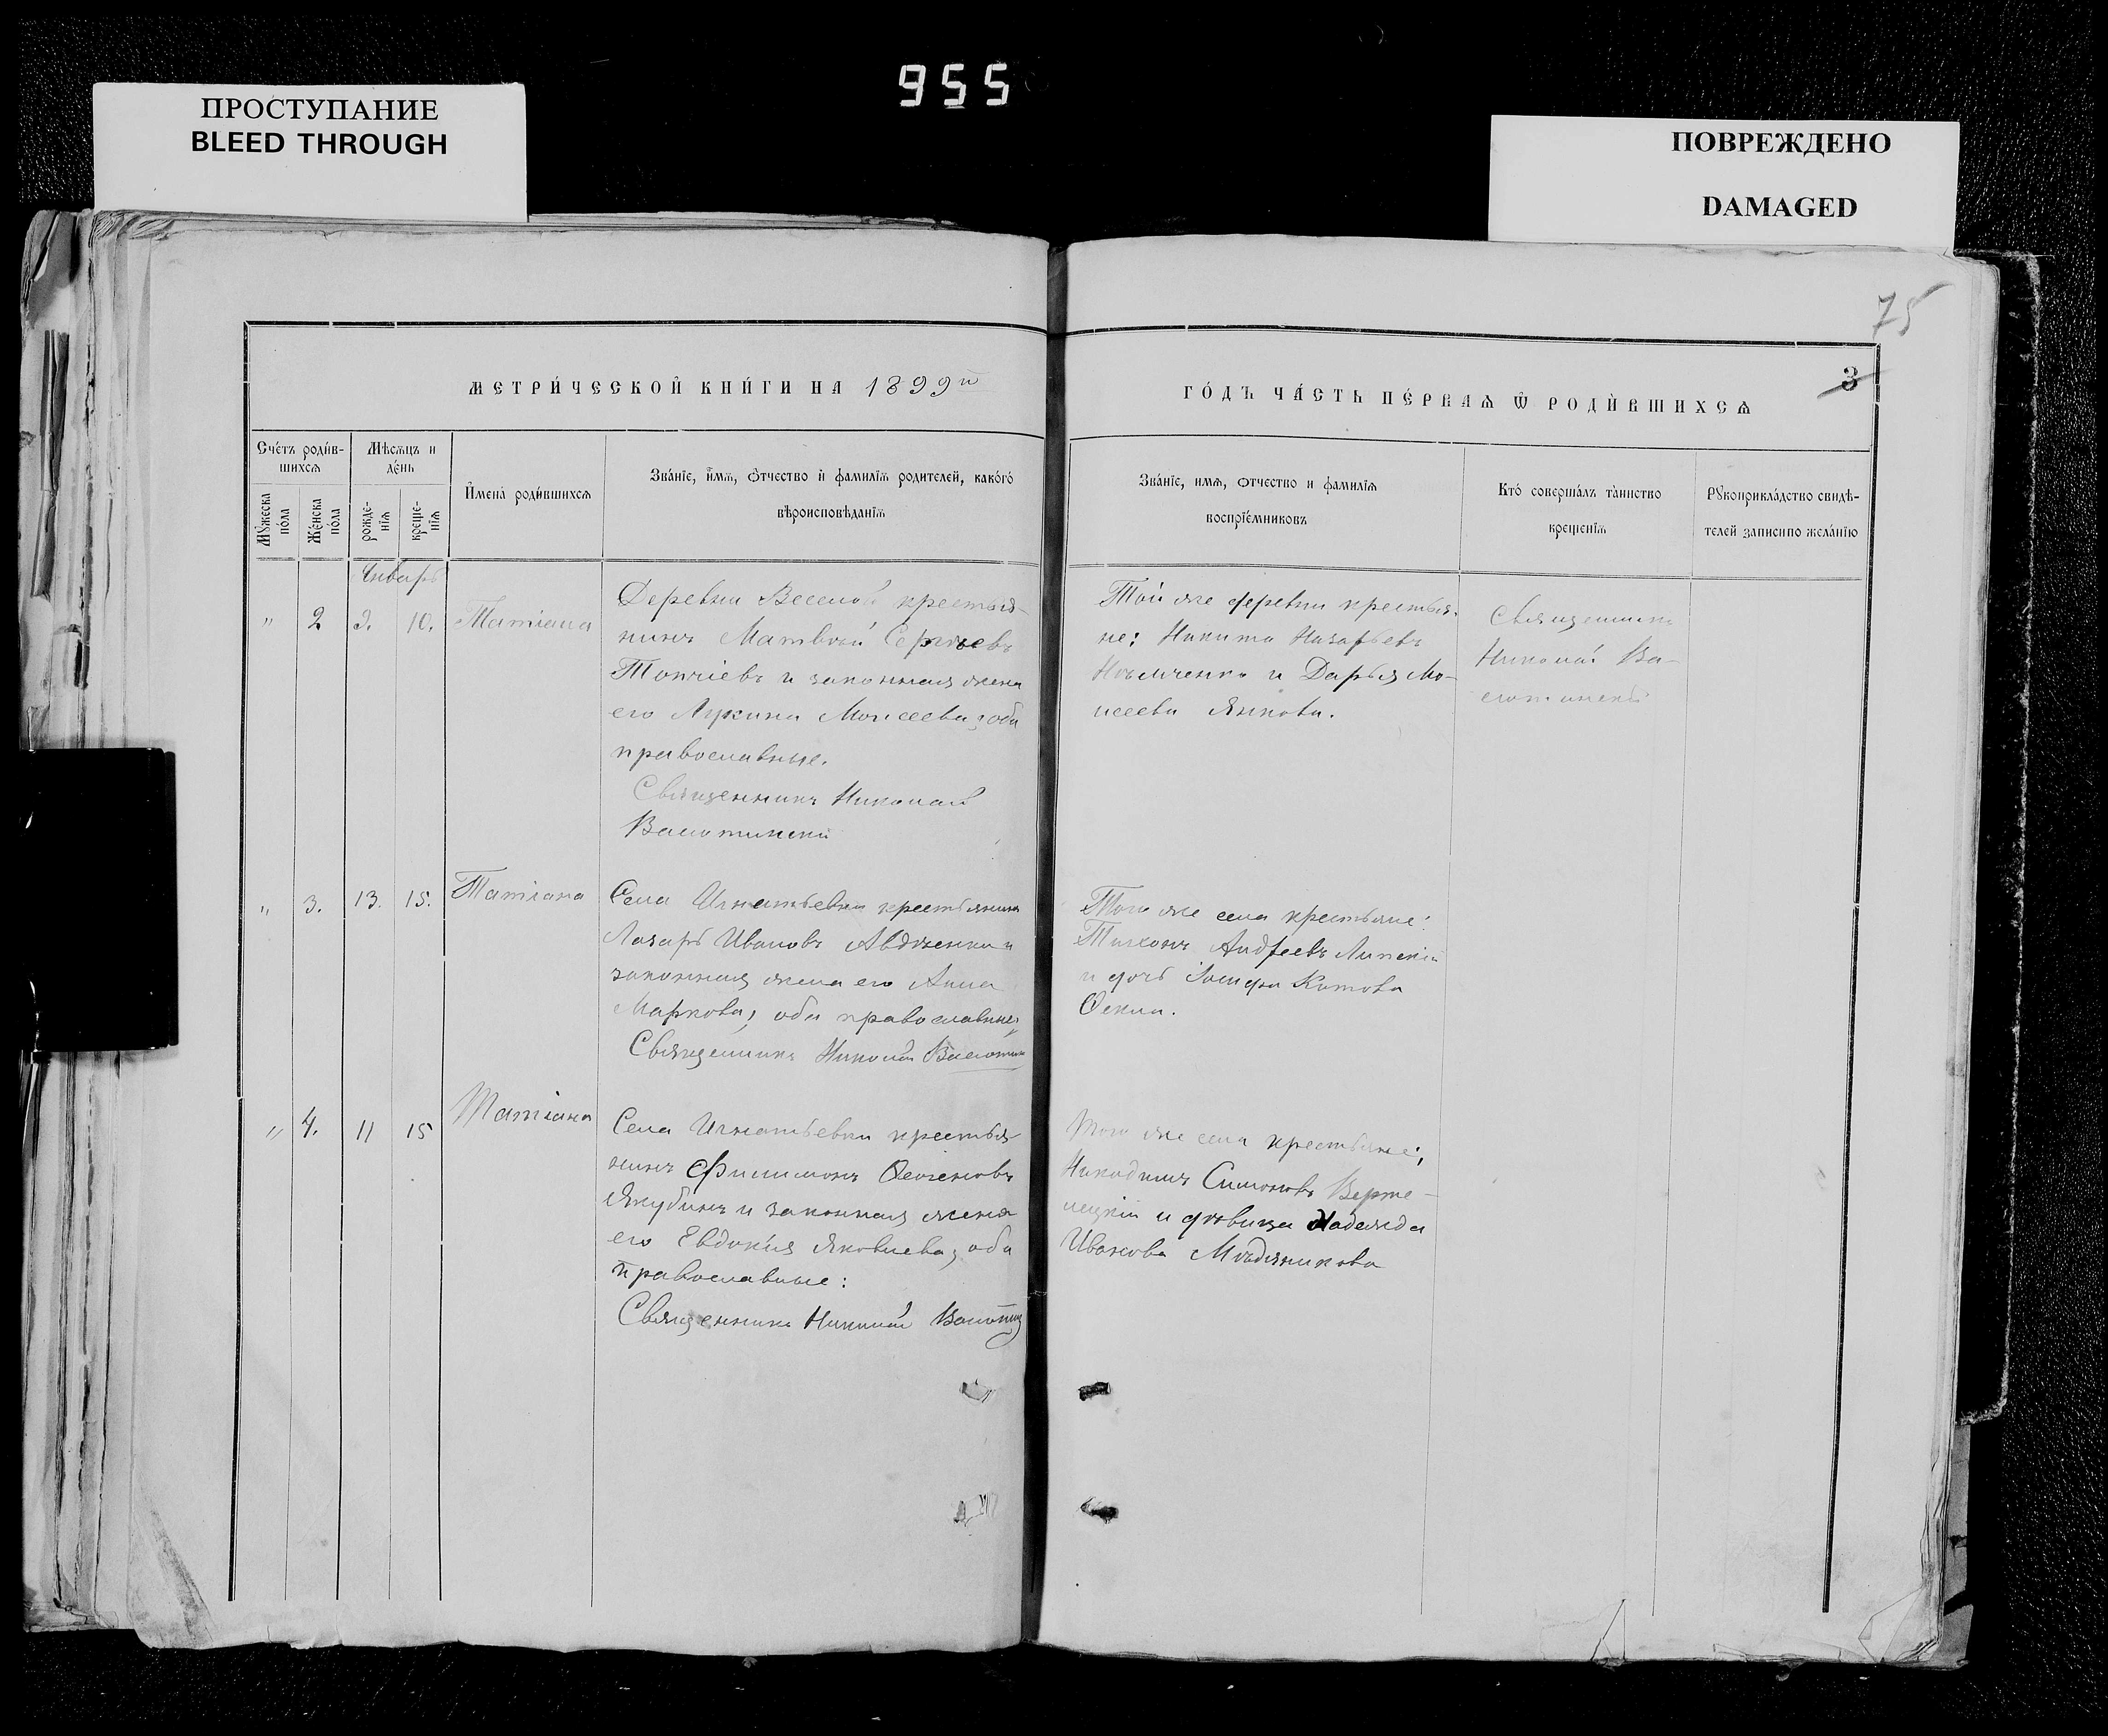 955
ПРОСТУПАНИЕ
BLEED THROUGH
ПОВРЕЖДЕНО
DAMAGED
75
3
МЕТРИ́ЧЕСКОЙ КНИ́ГИ НА 1899й
ГО́ДЪ ЧА́СТЬ ПЕ́РВАѦ Ѿ РОДИ́ВШИХСѦ
Сче́тъ роди́в-
шихсѧ
Мѣсѧцъ и
де́нь
Мꙋ́жеска
по́ла
Же́нска
по́ла
рожде-
нїѧ
креще-
нїѧ
Имена̀ роди́вшихсѧ
Зва́нїе, имѧ, отчество и фамилїѧ родителей, како́го
вѣроисповѣданїѧ
Зва́нїе, имѧ, отчество и фамилїѧ
воспрїе́мниковъ
Кто̀ соверша́лъ та̀инство
крещенїѧ
Рꙋкоприкла́дство свидѣ-
телей записи по жела́нїю
Январь
" 2 3. 10. Татiана
Деревни Веселой крестья-
нинъ Матвѣй Сергѣевъ
и законная жена
его Лукина Моисеева, оба
православные.
Священникъ Николай
Той же деревни крестья-
не: Никита Назарьевъ
и Дарья Мо-
исеева Янкова.
Священникъ
Николай
" 3. 13. 15. Татiана
Села Игнатьевки крестьянинъ
Лазарь Ивановъ Авдѣенко и
законная жена его Анна
Маркова, оба православные
Священникъ Николай
Того же села крестьяне:
Тихонъ Андреевъ Липскій
и дочь Китова
Фекла.
" 4. 11 15 Татiана
Села Игнатьевки крестья-
нинъ Филимонъ
Якубинъ и законная жена
его Евдокія Яковлева, оба
православные:
Священникъ Николай
Того же села крестьяне:
Никодимъ Симоновъ Верте-
лецкій и дѣвица Надежда
Иванова Мѣдяникова